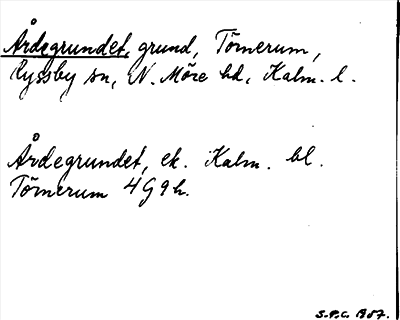 Årdegrundet, grund, Törnerum,
Ryssby sn, N. Möre hd, Kalm. l.
Årdegrundet, ek. Kalm. bl.
Törnerum 4G9h.
S.P.C. 1987.